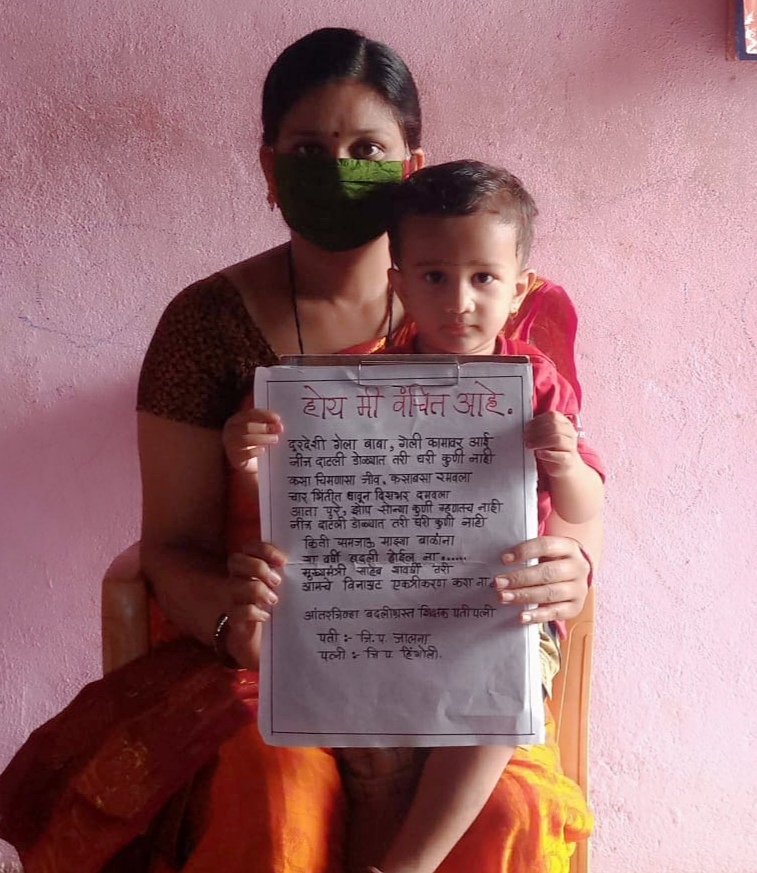 होय मी वंचित आहे.
दुरदेशी गेला बाबा, गेली कामावर आई
नीज दाटली डोळ्यात तरी घरी कुणी नाही
कसा चिमणासा जीव, कसाबसा रमवला
चार भिंतीत धावून दिसभर दमवला
आता पुरे, झोप सोन्या कुणी म्हणतच नाही
नीज दाटली डोळ्यात तरी घरी कुणी नाही
किती समजाऊ माझ्या बाळांना
या वर्षी बदली होईल ना......
मुख्यमंत्री साहेब यावर्षी तरी
आमचे विनाअट एकत्रीकरण करा ना.
आंतरजिल्हा बदलीग्रस्त शिक्षक पती पत्नी
पती :- जि.प. जालना
पत्नी :- जि प. हिंगोली.